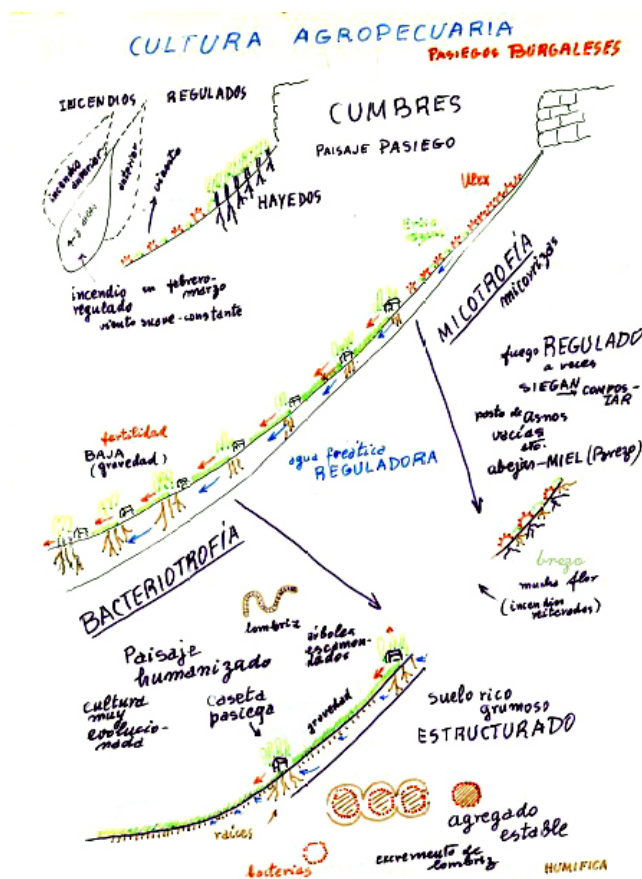 CULTURA AGROPECUARIA
PASIEGOS BURGALESES
INCENDIOS REGULADOS
CUMBRES
PAISAJE PASIEGO
incendio superior
anterior
viento
HAYEDOS
Ulex
incendio en febrero-
regulado marzo
viento suave-constante
MICOTROFÍA
micorrizas
fuego REGULADO
a veces
SIEGAN → COMPOS-
TAR
pasto de Asnos
vacías
etc.
abejas-MIEL (Brezo)
fertilidad
BAJA
(gravedad)
agua freática
REGULADORA
brezo
mucha flor
(incendios
reiterados)
BACTERIOTROFÍA
lombriz
árboles
escamon-
dados
Paisaje
humanizado
cultura
muy
evolucio-
nada
caseta
pasiega
gravedad
suelo rico
grumoso
ESTRUCTURADO
raíces
agregado
estable
bacterias
excremento de
lombriz
HUMIFICA